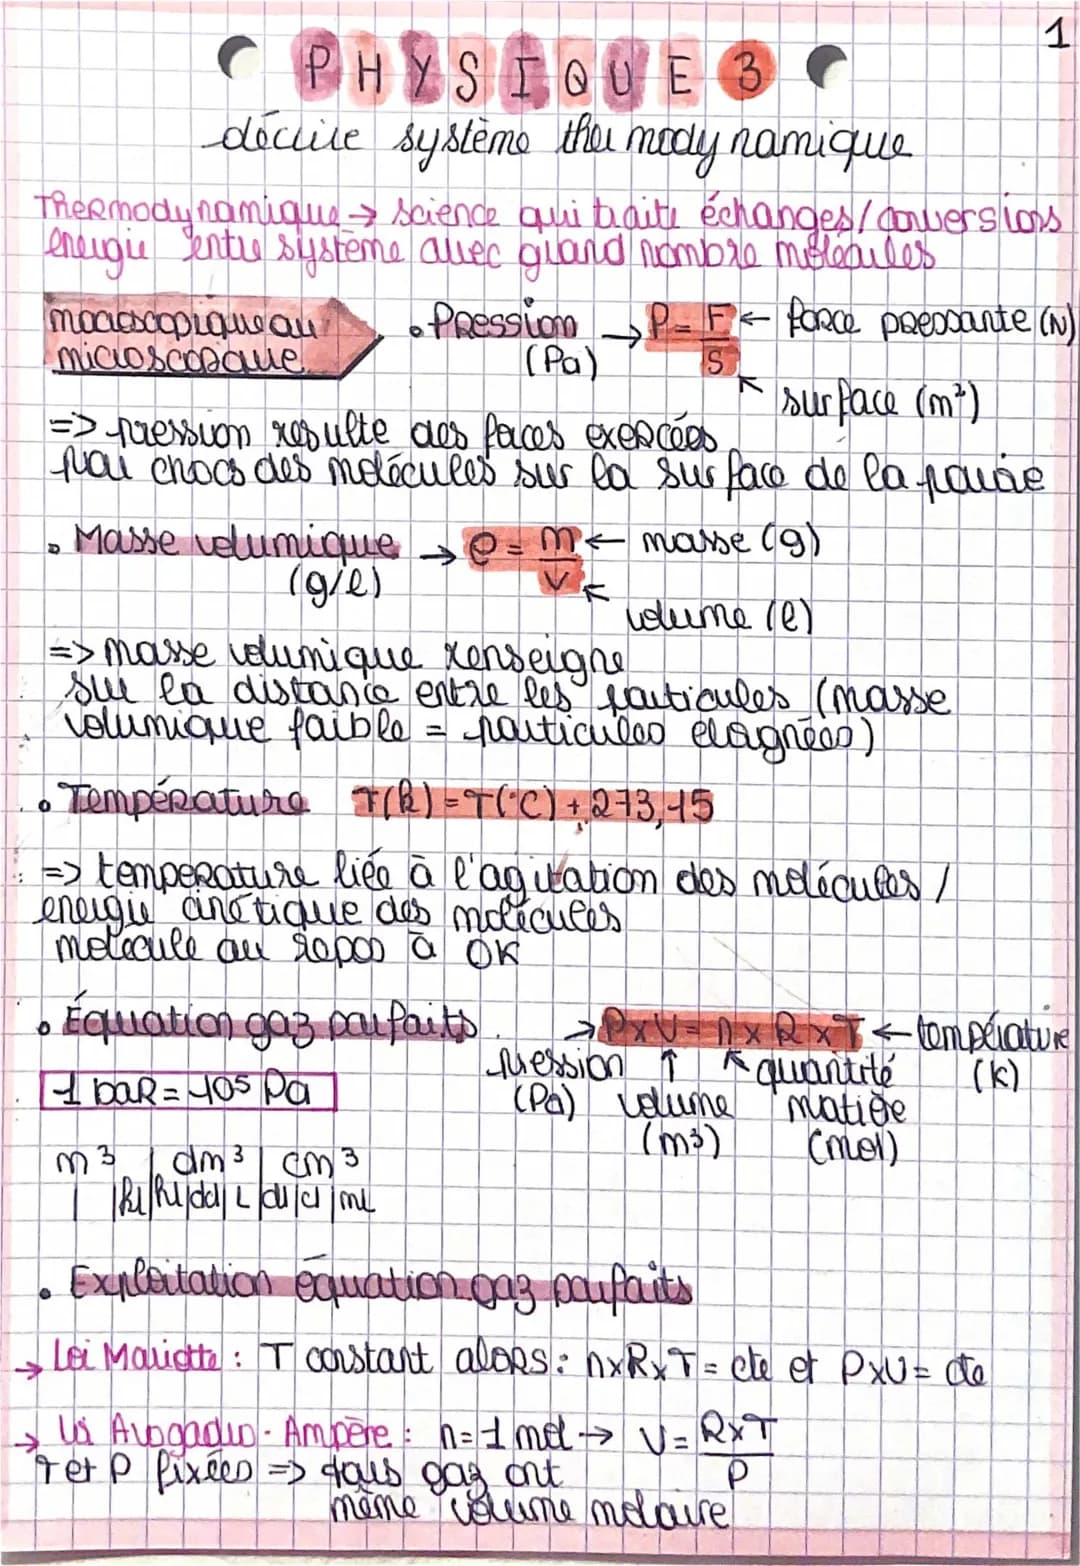 1
PHYSIQUE 3
décrire système thermodynamique
Thermodynamique → science qui traite échanges/conversions
énergie entre système avec grand nombre molécules
macroscopique au
microscopique
• Pression → P = F/S ← force pressante (N)
(Pa)
surface (m²)
=> pression resulte des forces exercées
par chocs des molécules sur la surface de la paroie
• Masse volumique → ρ = m/V ← masse (g)
(g/l)
volume (l)
=> masse volumique renseigne
sur la distance entre les particules (masse
volumique faible = particules élognées)
• Température T(k) = T(°C) + 273,15
=> temperature liée à l'agitation des molécules /
énergie cinétique des molécules
molécule au repos à 0K
• Équation gaz parfaits → P x V = n x R x T ← température
pression ↑ ↖ quantité (K)
1 baR = 10⁵ Pa
(Pa) volume matière
(m³) (mol)
m³ | dm³ | cm³
| kl | hl | dal | L | dl | cl | ml
• Exploitation équation gaz parfaits
→ Loi Mariotte : T constant alors : n x R x T = cte et P x V = cte
→ Loi Avogadro - Ampère : n = 1 mol → V = R x T / P
T et P fixées => tous gaz ont
même volume molaire